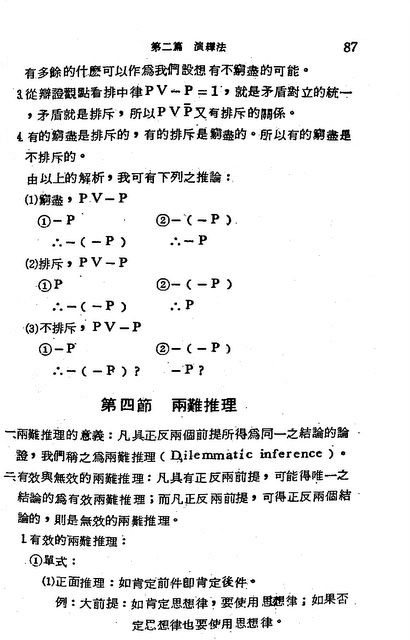 第二篇 演繹法 87
有多餘的什麽可以作爲我們設想有不窮盡的可能。
3.從辯證觀點看排中律PV－P＝1，就是矛盾對立的統一
，矛盾就是排斥，所以PVP̄又有排斥的關係。
4.有的窮盡是排斥的，有的排斥是窮盡的。所以有的窮盡是
不排斥的。
由以上的解析，我可有下列之推論：
(1)窮盡，PV－P
①－P ②－(－P)
∴－(－P) ∴－P
(2)排斥，PV－P
①P ②－(－P)
∴－(－P) ∴P
(3)不排斥，PV－P
①－P ②－(－P)
∴－(－P)? －P?
第四節 兩難推理
一、兩難推理的意義：凡具正反兩個前提所得爲同一之結論的論
證，我們稱之爲兩難推理（Dilemmatic inference）。
二、有效與無效的兩難推理：凡具有正反兩前提，可能得唯一之
結論的爲有效兩難推理；而凡正反兩前提，可得正反兩個結
論的，則是無效的兩難推理。
1.有效的兩難推理：
①單式：
(1)正面推理：如肯定前件即肯定後件。
例：大前提：如肯定思想律，要使用思想律；如果否
定思想律也要使用思想律。